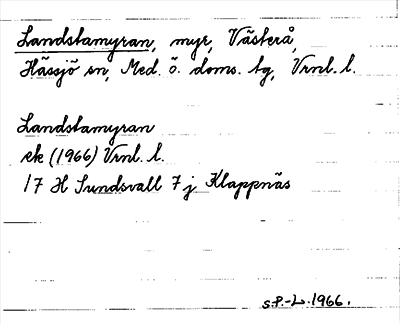 Landstamyran, myr, Västerå,
Hässjö sn, Med. ö. doms. tg, Vrnl. l.
Landstamyran
ek (1966) Vrnl. l.
17 H Sundsvall 7 j Klappnäs
S.P.-L. 1966.